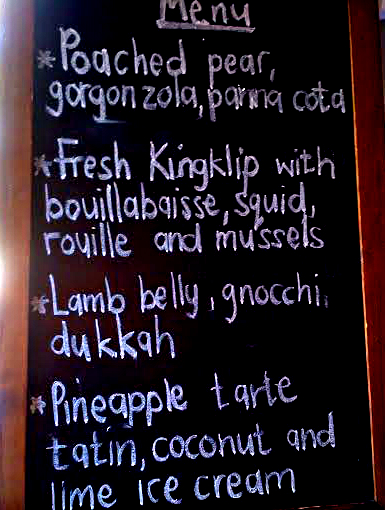 Menu
* Poached pear,
gorgonzola, parma cota
* Fresh Kingklip with
bouillabaisse, squid,
rouille and mussels
* Lamb belly, gnocchi,
dukkah
* Pineapple tarte
tatin, coconut and
lime ice cream